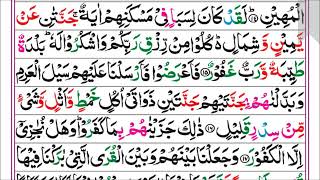 الْمُهِیْنِ ﴿۱۴﴾ لَقَدْ كَانَ لِسَبَاٍ فِیْ مَسْكَنِهِمْ اٰیَةٌ ۚ جَنَّتٰنِ عَنْ
یَّمِیْنٍ وَّ شِمَالٍ ۬ؕ كُلُوْا مِنْ رِّزْقِ رَبِّكُمْ وَ اشْكُرُوْا لَهٗ ؕ بَلْدَةٌ
طَیِّبَةٌ وَّ رَبٌّ غَفُوْرٌ ﴿۱۵﴾ فَاَعْرَضُوْا فَاَرْسَلْنَا عَلَیْهِمْ سَیْلَ الْعَرِمِ
وَ بَدَّلْنٰهُمْ بِجَنَّتَیْهِمْ جَنَّتَیْنِ ذَوَاتَیْ اُكُلٍ خَمْطٍ وَّ اَثْلٍ وَّ شَیْءٍ
مِّنْ سِدْرٍ قَلِیْلٍ ﴿۱۶﴾ ذٰلِكَ جَزَیْنٰهُمْ بِمَا كَفَرُوْا ؕ وَ هَلْ نُجٰزِیْۤ
اِلَّا الْكَفُوْرَ ﴿۱۷﴾ وَ جَعَلْنَا بَیْنَهُمْ وَ بَیْنَ الْقُرَی الَّتِیْ بٰرَكْنَا فِیْهَا